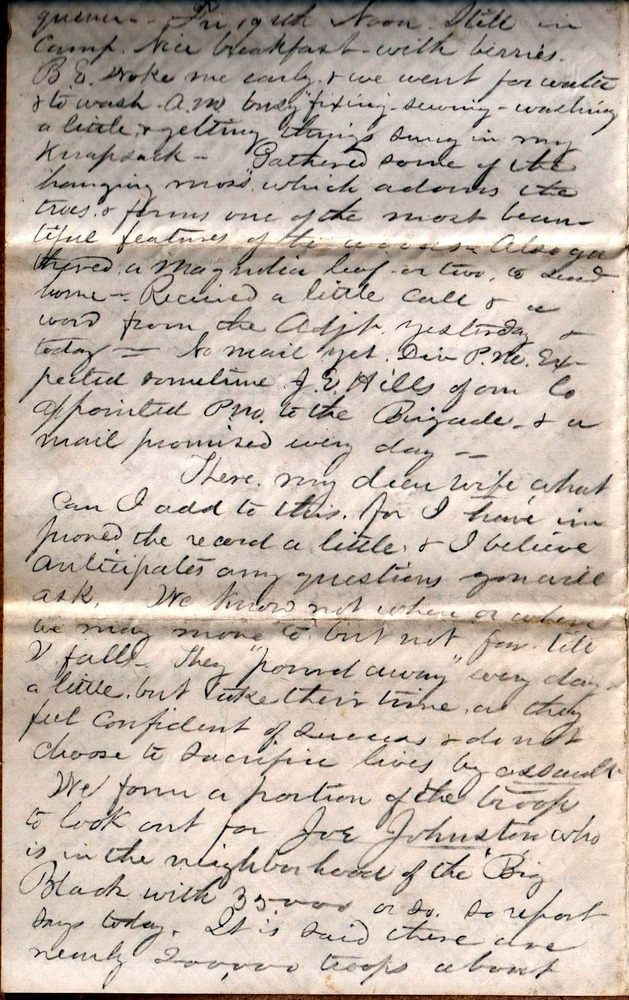 Fri 19th Noon. Still in
Camp. Nice breakfast with berries.
B E. woke me early & we went for water
& to wash. A.M. busy fixing - sewing - washing
a little & getting things snug in my
Knapsack - Gathered some of the
hanging moss which adorns the
trees & forms one of the most beau-
tiful features of the woods - Also ga
thered a magnolia leaf or two, to send
home - Received a little call & a
word from the Adjt. yesterday &
today = No mail yet. Div P.M. Ex-
pected sometime. J. E. Hills of our Co
appointed P.M. to the Brigade - & a
mail promised every day -
There. my dear wife what
Can I add to this. for I have im
proved the record a little. & I believe
anticipates any questions you will
ask. We know not when or where
we may move to but not far till
V falls - They "pound away" every day
a little. but take their time, as they
feel confident of success & do not
choose to sacrifice lives by assault
We form a portion of the troops
to look out for Joe Johnston who
is in the neighborhood of the "Big
Black with 35000 or so, so report
says today. It is said there are
nearly 200,000 troops about